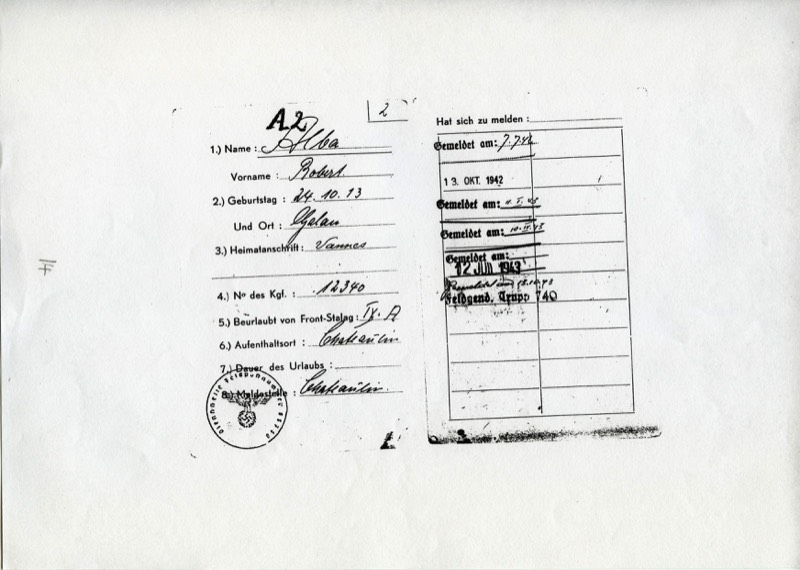 A2
2
1.) Name : Alba
Vorname : Robert
2.) Geburtstag : 24.10.13
Und Ort :
3.) Heimatanschrift : Vannes
4.) Nº des Kgf. : 12340
5.) Beurlaubt von Front-Stalag : IX. A
6.) Aufenthaltsort : Chateaulin
7.) Dauer des Urlaubs :
8.) Meldestelle : Chateaulin
Dienststelle Feldpostnummer
Hat sich zu melden :
Gemeldet am: 7.7.42
13. OKT. 1942
Gemeldet am:
Gemeldet am:
Gemeldet am:
12 JUN 1943
Feldgend. Trupp 740
F